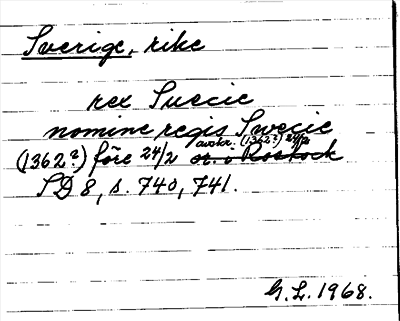 Sverige, rike
rex Suecie
nomine regis Swecie
avskr. (1362?) 24/2
(1362?) före 24/2 or. o Rostock
SD 8, s. 740, 741.
G.L. 1968.